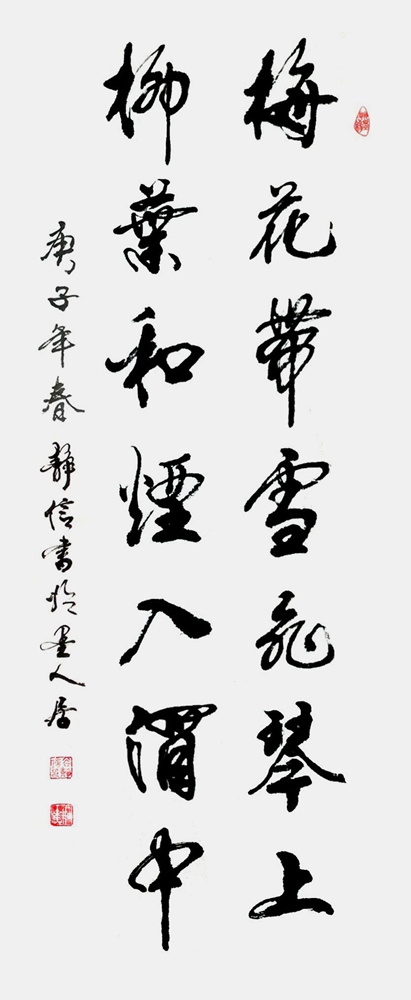 梅花帶雪飛琴上
柳葉和煙入酒中
庚子年春靜信書於墨人居